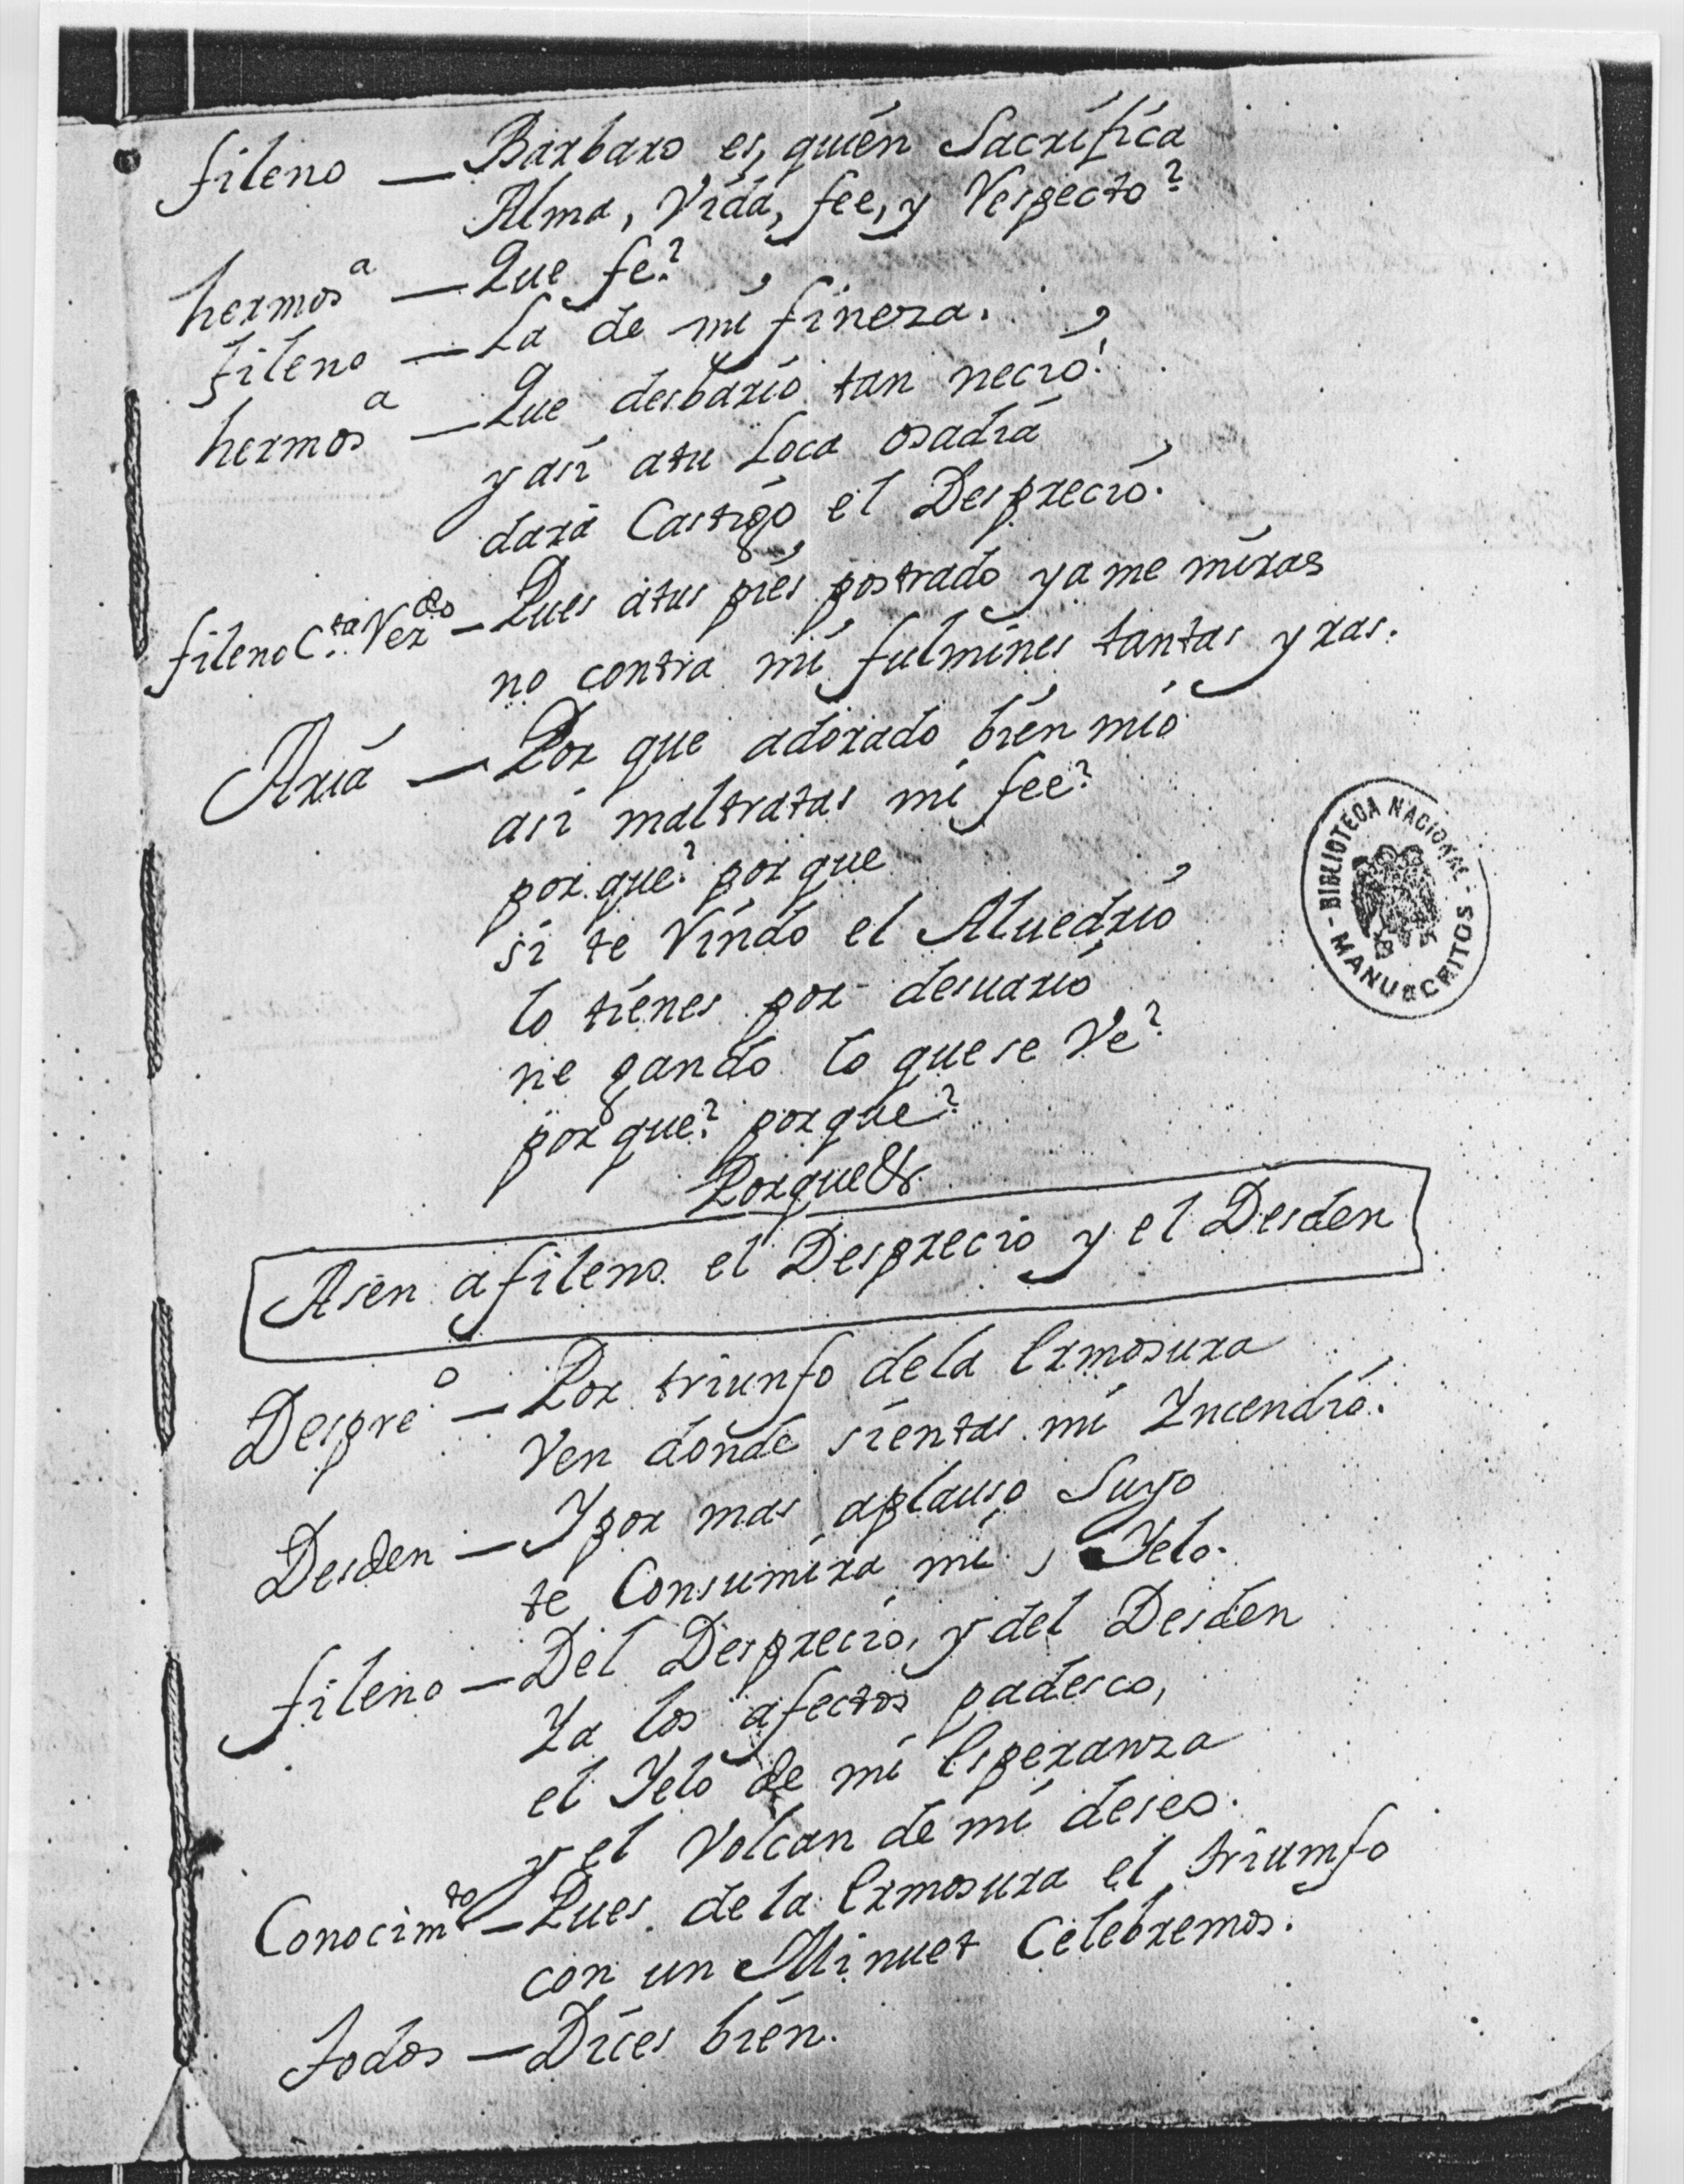 fileno — Barbaro es, quién Sacrifica
Alma, Vida, fee, y Respecto?
hermosª — Que fe?
fileno — La de mi fineza.
hermosª — Que desbario tan necio!
y asi atu Loca osadia
dara Castigo el Desprecio.
fileno C.ta Rezdo — Pues atus pies postrado ya me miras
no contra mi fulmines tantas yras.
Aria — Por que adorado bien mio
asi maltratas mi fee?
por que? por que
si te Rindo el Aluedrio
lo tienes por desuario
ne gando lo que se Ve?
por que? porque?
Porque &.
Asen a fileno el Desprecio y el Desden
Despreº — Por triunfo dela Ermosura
Ven donde sientas mi Yncendio.
Desden — Y por mas aplauso Suyo
te Consumira mi Yelo.
fileno — Del Desprecio, y del Desden
Ya los afectos padesco,
el Yelo de mi Esperanza
y el Volcan de mi deseo.
Conocimto — Pues de la Ermosura el triumfo
con un Minuet Celebremos.
todos — Dices bien.
BIBLIOTECA NACIONAL
MANUSCRITOS